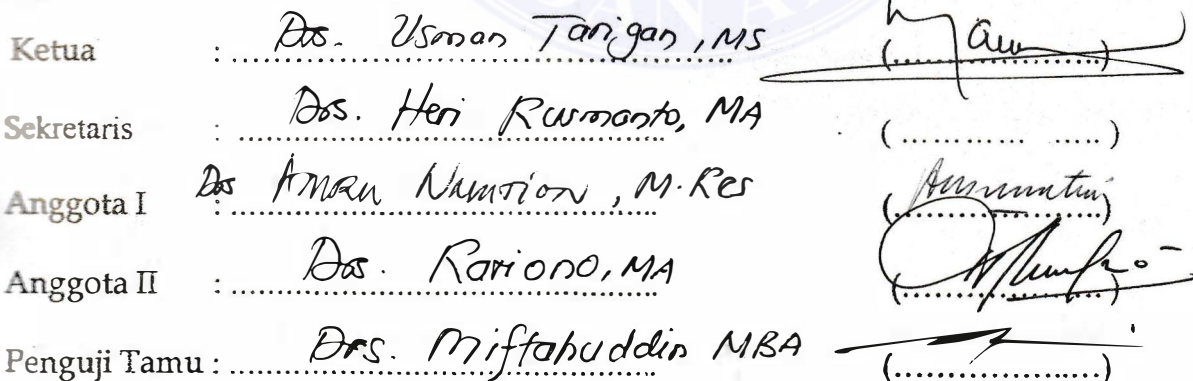 Ketua : Drs. Usman Tarigan, MS (....................)
Sekretaris : Drs. Heri Kusmanto, MA (....................)
Anggota I : Drs Amru Nasution, M.Res (....................)
Anggota II : Drs. Kariono, MA (....................)
Penguji Tamu : Drs. Miftahuddin MBA (....................)